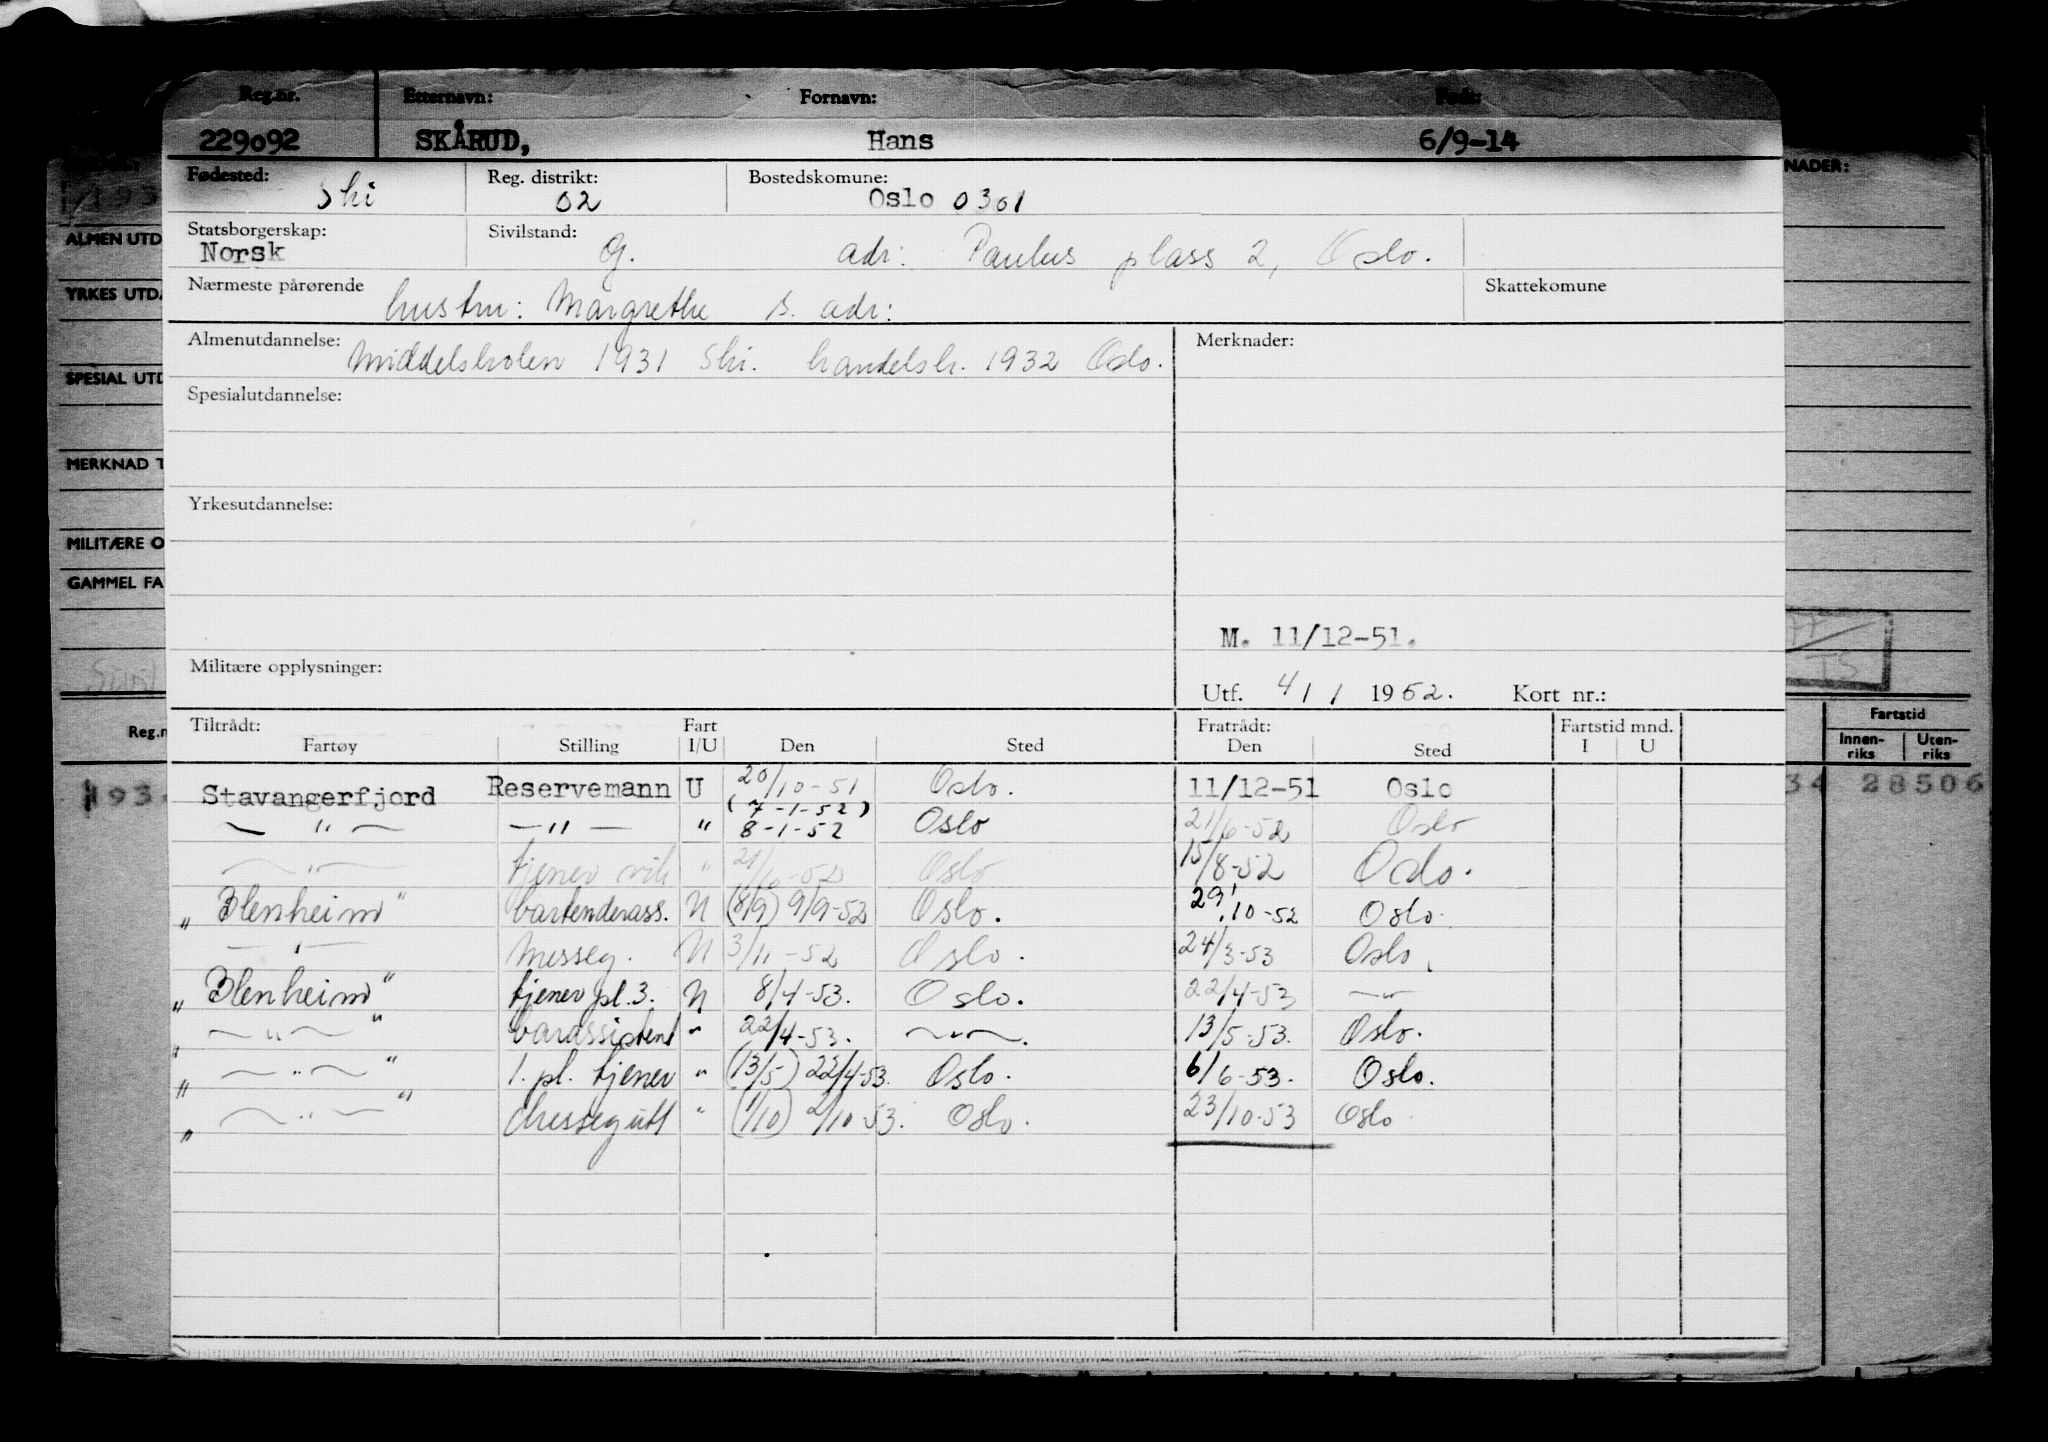 Reg.nr. Etternavn: Fornavn: Født:
229092 SKÅRUD, Hans 6/9-14
Fødested: Ski Reg. distrikt: 02 Bostedskomune: Oslo 0301
Statsborgerskap: Norsk Sivilstand: G. adr: Paulus plass 2, Oslo.
Nærmeste pårørende hustru: Margrethe s. adr: Skattekomune
Almenutdannelse: Middelskolen 1931 Ski. handelsk. 1932 Oslo. Merknader:
Spesialutdannelse:
Yrkesutdannelse:
M. 11/12-51.
Militære opplysninger:
Utf. 4/1 1952. Kort nr.:
Tiltrådt: Fart Fratrådt: Fartstid mnd.
Fartøy Stilling I/U Den Sted Den Sted I U
Stavangerfjord Reservemann U 20/10-51 Oslo. 11/12-51 Oslo
(7-1-52)
— " — — " — " 8-1-52 Oslo 21/6-52 Oslo
— " — tjener vik " 21/6-52 Oslo 15/8-52 Oslo.
"Blenheim" bartenderass. U (8/9) 9/9-52 Oslo. 29/10-52 Oslo.
— " — Messeg. U 3/11-52 Oslo. 24/3-53 Oslo.
"Blenheim" tjener pl.3. U 8/4-53. Oslo. 22/4-53 — " —
" — " — " barassistent " 22/4-53. — " —. 13/5-53. Oslo.
" — " — " 1. pl. tjener " (13/5) 22/4-53. Oslo. 6/6-53. Oslo.
" — " — " Messegutt " (1/10) 2/10-53. Oslo. 23/10-53 Oslo
NADER:
ALMEN UTD
YRKES UTD.
SPESIAL UTD
MERKNAD T
MILITÆRE O
GAMMEL FA
77
TS
Reg.n
Fartstid
Innen-riks Uten-riks
193
34 28506